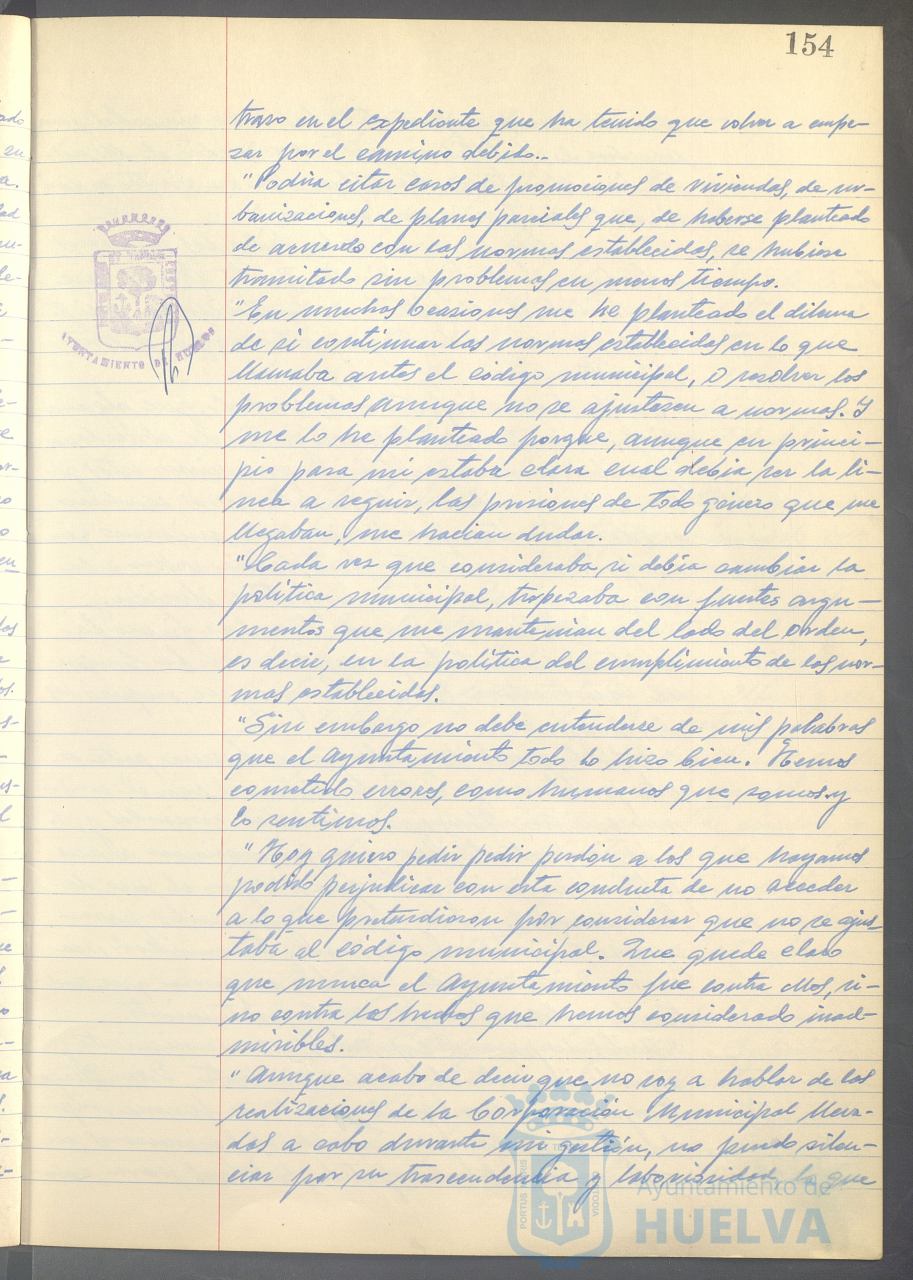 154
traso en el expediente que ha tenido que volver a empe-
zar por el camino debido..
"Podria citar casos de promociones de viviendas, de ur-
banizaciones, de planes parciales que, de haberse planteado
de acuerdo con las normas establecidas, se hubiera
tramitado sin problemas en menos tiempo.
"En muchas ocasiones me he planteado el dilema
de si continuar las normas establecidas en lo que
llamaba antes el código municipal, o resolver los
problemas aunque no se ajustasen a normas. Y
me lo he planteado porque, aunque en princi-
pio para mi estaba clara cual debia ser la li-
nea a seguir, las presiones de todo género que me
llegaban, me hacian dudar.
"Cada vez que consideraba si debia cambiar la
politica municipal, tropezaba con fuertes argu-
mentos que me mantenian del lado del orden,
es decir, en la politica del cumplimiento de las nor-
mas establecidas.
"Sin embargo no debe entenderse de mis palabras
que el Ayuntamiento todo lo hizo bien. Hemos
cometido errores, como humanos que somos y
lo sentimos.
"Hoy quiero pedir pedir perdón a los que hayamos
podido perjudicar con esta conducta de no acceder
a lo que pretendieron por considerar que no se ajus-
taba al código municipal. Que quede claro
que nunca el Ayuntamiento fue contra ellos, si-
no contra los hechos que hemos considerado inad-
misibles.
"Aunque acabo de decir que no voy a hablar de las
realizaciones de la Corporación Municipal lleva-
das a cabo durante mi gestión, no puedo silen-
ciar por su trascendencia y laboriosidad, la que
AYUNTAMIENTO DE HUELVA
PORTUS MARIS
CUSTODIA
Ayuntamiento de
HUELVA